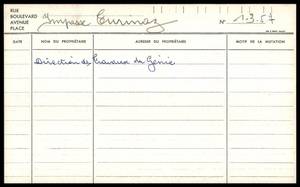 RUE
BOULEVARD
AVENUE
PLACE
Impasse Turinaz
N° 1.3.5.7
DATE
NOM DU PROPRIÉTAIRE
ADRESSE DU PROPRIÉTAIRE
MOTIF DE LA MUTATION
Direction des Travaux du Génie